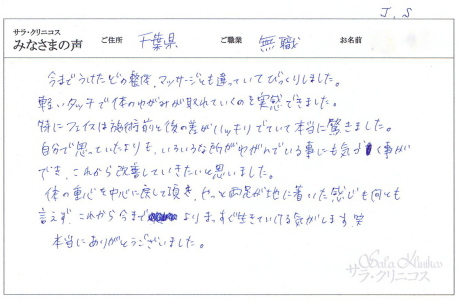 J.S
サラ・クリニコス
みなさまの声 ご住所 千葉県 ご職業 無職 お名前
今までうけたどの整体、マッサージとも違っていてびっくりしました。
軽いタッチで体のゆがみが取れていくのを実感できました。
特にフェイスは施術前と後の差がハッキリでていて本当に驚きました。
自分で思っていたよりも、いろいろな所がゆがんでいる事にも気づく事が
でき、これから改善していきたいと思いました。
体の重心を中心に戻して頂き、やっと両足が地に着いた感じも何とも
言えず、これから今までよりまっすぐ生きていける気がします 笑
本当にありがとうございました。
Sala Klinikos
サラ・クリニコス